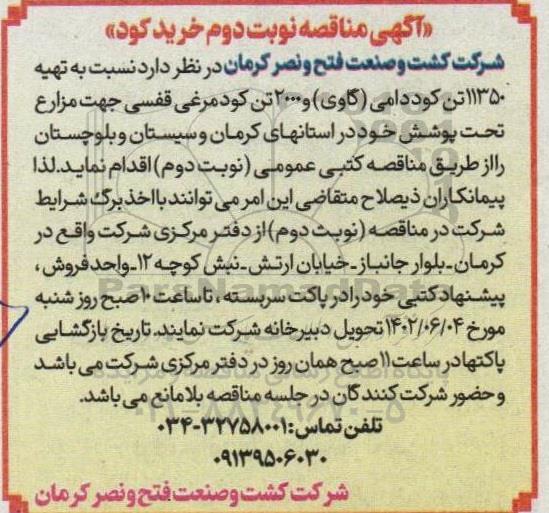 «آگهی مناقصه نوبت دوم خرید کود»
شرکت کشت و صنعت فتح و نصر کرمان در نظر دارد نسبت به تهیه
۱۱۳۵۰ تن کود دامی (گاوی) و ۲۰۰۰ تن کود مرغی قفسی جهت مزارع
تحت پوشش خود در استانهای کرمان و سیستان و بلوچستان
را از طریق مناقصه کتبی عمومی (نوبت دوم) اقدام نماید. لذا
پیمانکاران ذیصلاح متقاضی این امر می توانند با اخذ برگ شرایط
شرکت در مناقصه (نوبت دوم) از دفتر مرکزی شرکت واقع در
کرمان ـ بلوار جانباز ـ خیابان ارتش ـ نبش کوچه ۱۲ ـ واحد فروش ،
پیشنهاد کتبی خود را در پاکت سربسته ، تا ساعت ۱۰ صبح روز شنبه
مورخ ۱۴۰۲/۰۶/۰۴ تحویل دبیرخانه شرکت نمایند. تاریخ بازگشایی
پاکتها در ساعت ۱۱ صبح همان روز در دفتر مرکزی شرکت می باشد
و حضور شرکت کنندگان در جلسه مناقصه بلامانع می باشد.
تلفن تماس: ۳۲۷۵۸۰۰۱-۰۳۴
۰۹۱۳۹۵۰۶۰۳۰
شرکت کشت و صنعت فتح و نصر کرمان
ParsNamadData
۰۲۱-۸۸۳۴۹۶۷۰-۵